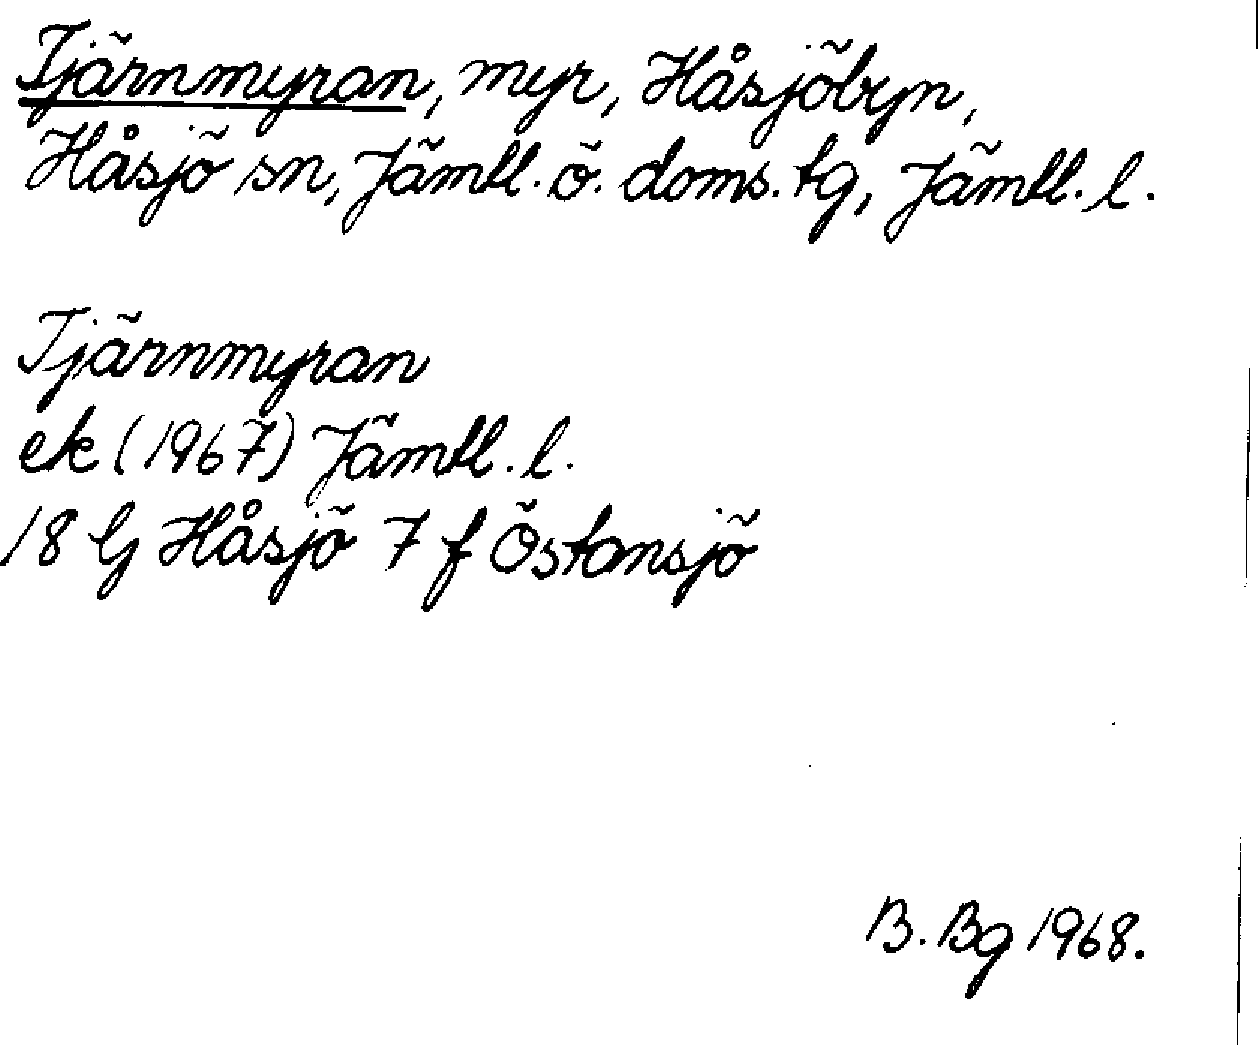 Tjärnmyran, myr, Håsjöbyn,
Håsjö sn, Jämtl. ö. doms. tg, Jämtl. l.
Tjärnmyran
ek (1967) Jämtl. l.
18 G Håsjö 7 f Östansjö
B. Bg 1968.